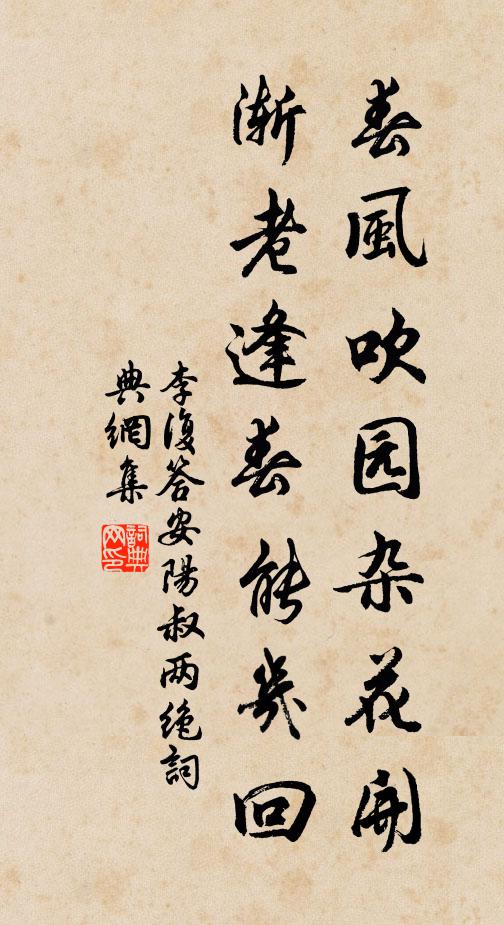 春風吹园杂花開
漸老逢春能幾回
李復答安陽叔两绝詞
典網集
詞典網印